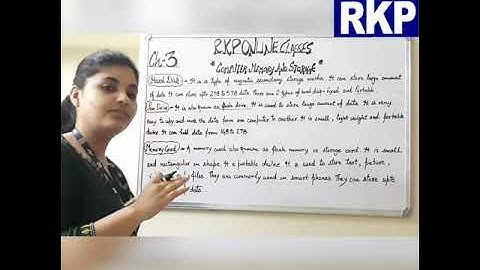 RKP
Ch-3
RKP ONLINE CLASSES
"COMPUTER MEMORY AND STORAGE"
Hard Disk - It is a type of magnetic secondary storage device. It can store large amount
of data. It can store upto 2TB to 5TB data. There are 2 types of hard disk - fixed and Portable.
Pen Drive - It is also known as flash drive. It is used to store large amount of data. It is very
easy to copy and move the data from one computer to another. It is small, light weight and portable
device. It can hold data from 1GB to 2TB.
Memory Card - A memory card also known as flash memory or storage card. It is small
and rectangular in shape. It a portable device. It is used to store text, picture,
files. They are commonly used in smart phones. They can store upto
data.